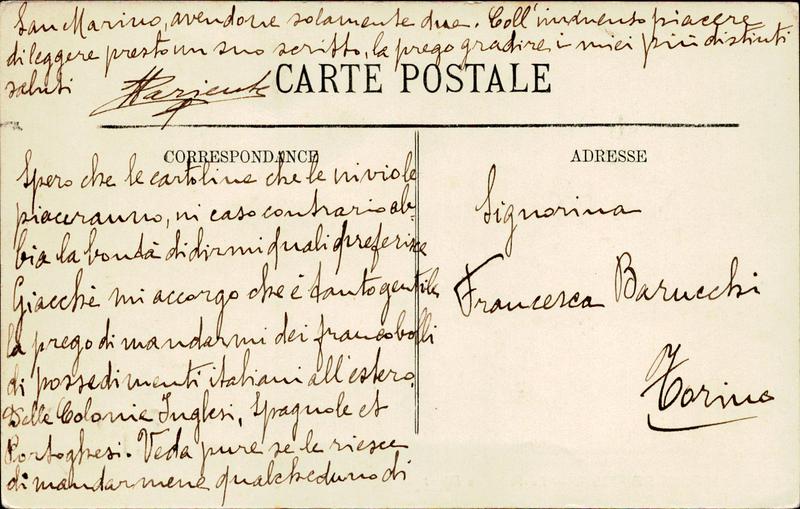 San Marino, avendone solamente due. Coll'immenso piacere
di leggere presto un suo scritto, la prego gradire i miei più distinti
saluti
CARTE POSTALE
CORRESPONDANCE
Spero che le cartoline che le invio le
piaceranno, in caso contrario ab-
bia la bontà di dirmi quali preferisce
Giacchè mi accorgo che è tanto gentile
la prego di mandarmi dei francobolli
di possedimenti italiani all'estero.
Delle Colonie Inglesi, Spagnole et
Portoghesi. Veda pure se le riesce
di mandarmene qualcheduno di
ADRESSE
Signorina
Francesca Barucchi
Torino